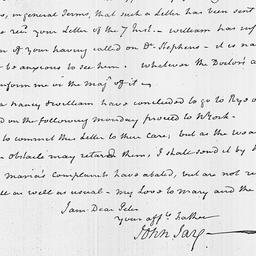 s, in general Terms, that such a Letter has been sent
rec.d your Letter of the 7 Inst. - William has inf
m of your having called on Dr. Stephens - it is na
be anxious to see him. Whatever the Doctor's
inform me in the Mag.e of it -
nancy & william have concluded to go to Rye
d on the following monday proceed to N York -
to commit this Letter to their Care; but as the wea
obstacle may retard them, I shall send it by
Maria's Complaints have abated, but are not re
ll as well as usual - my Love to mary and the
I am Dear Peter
Your aff.te Father
John Jay